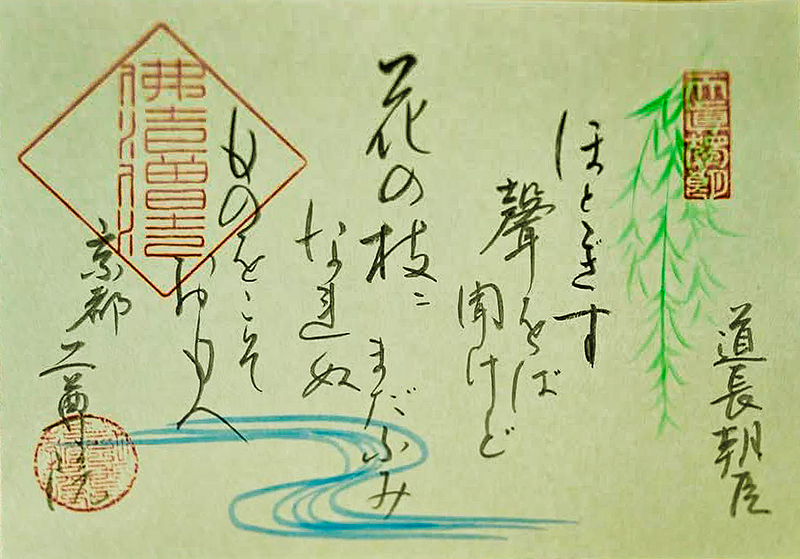 道長朝臣
ほとゝぎす
聲をば
聞けど
花の枝ニ
まだふみ
なれぬ
ものをこそ
おもへ
京都 二尊院